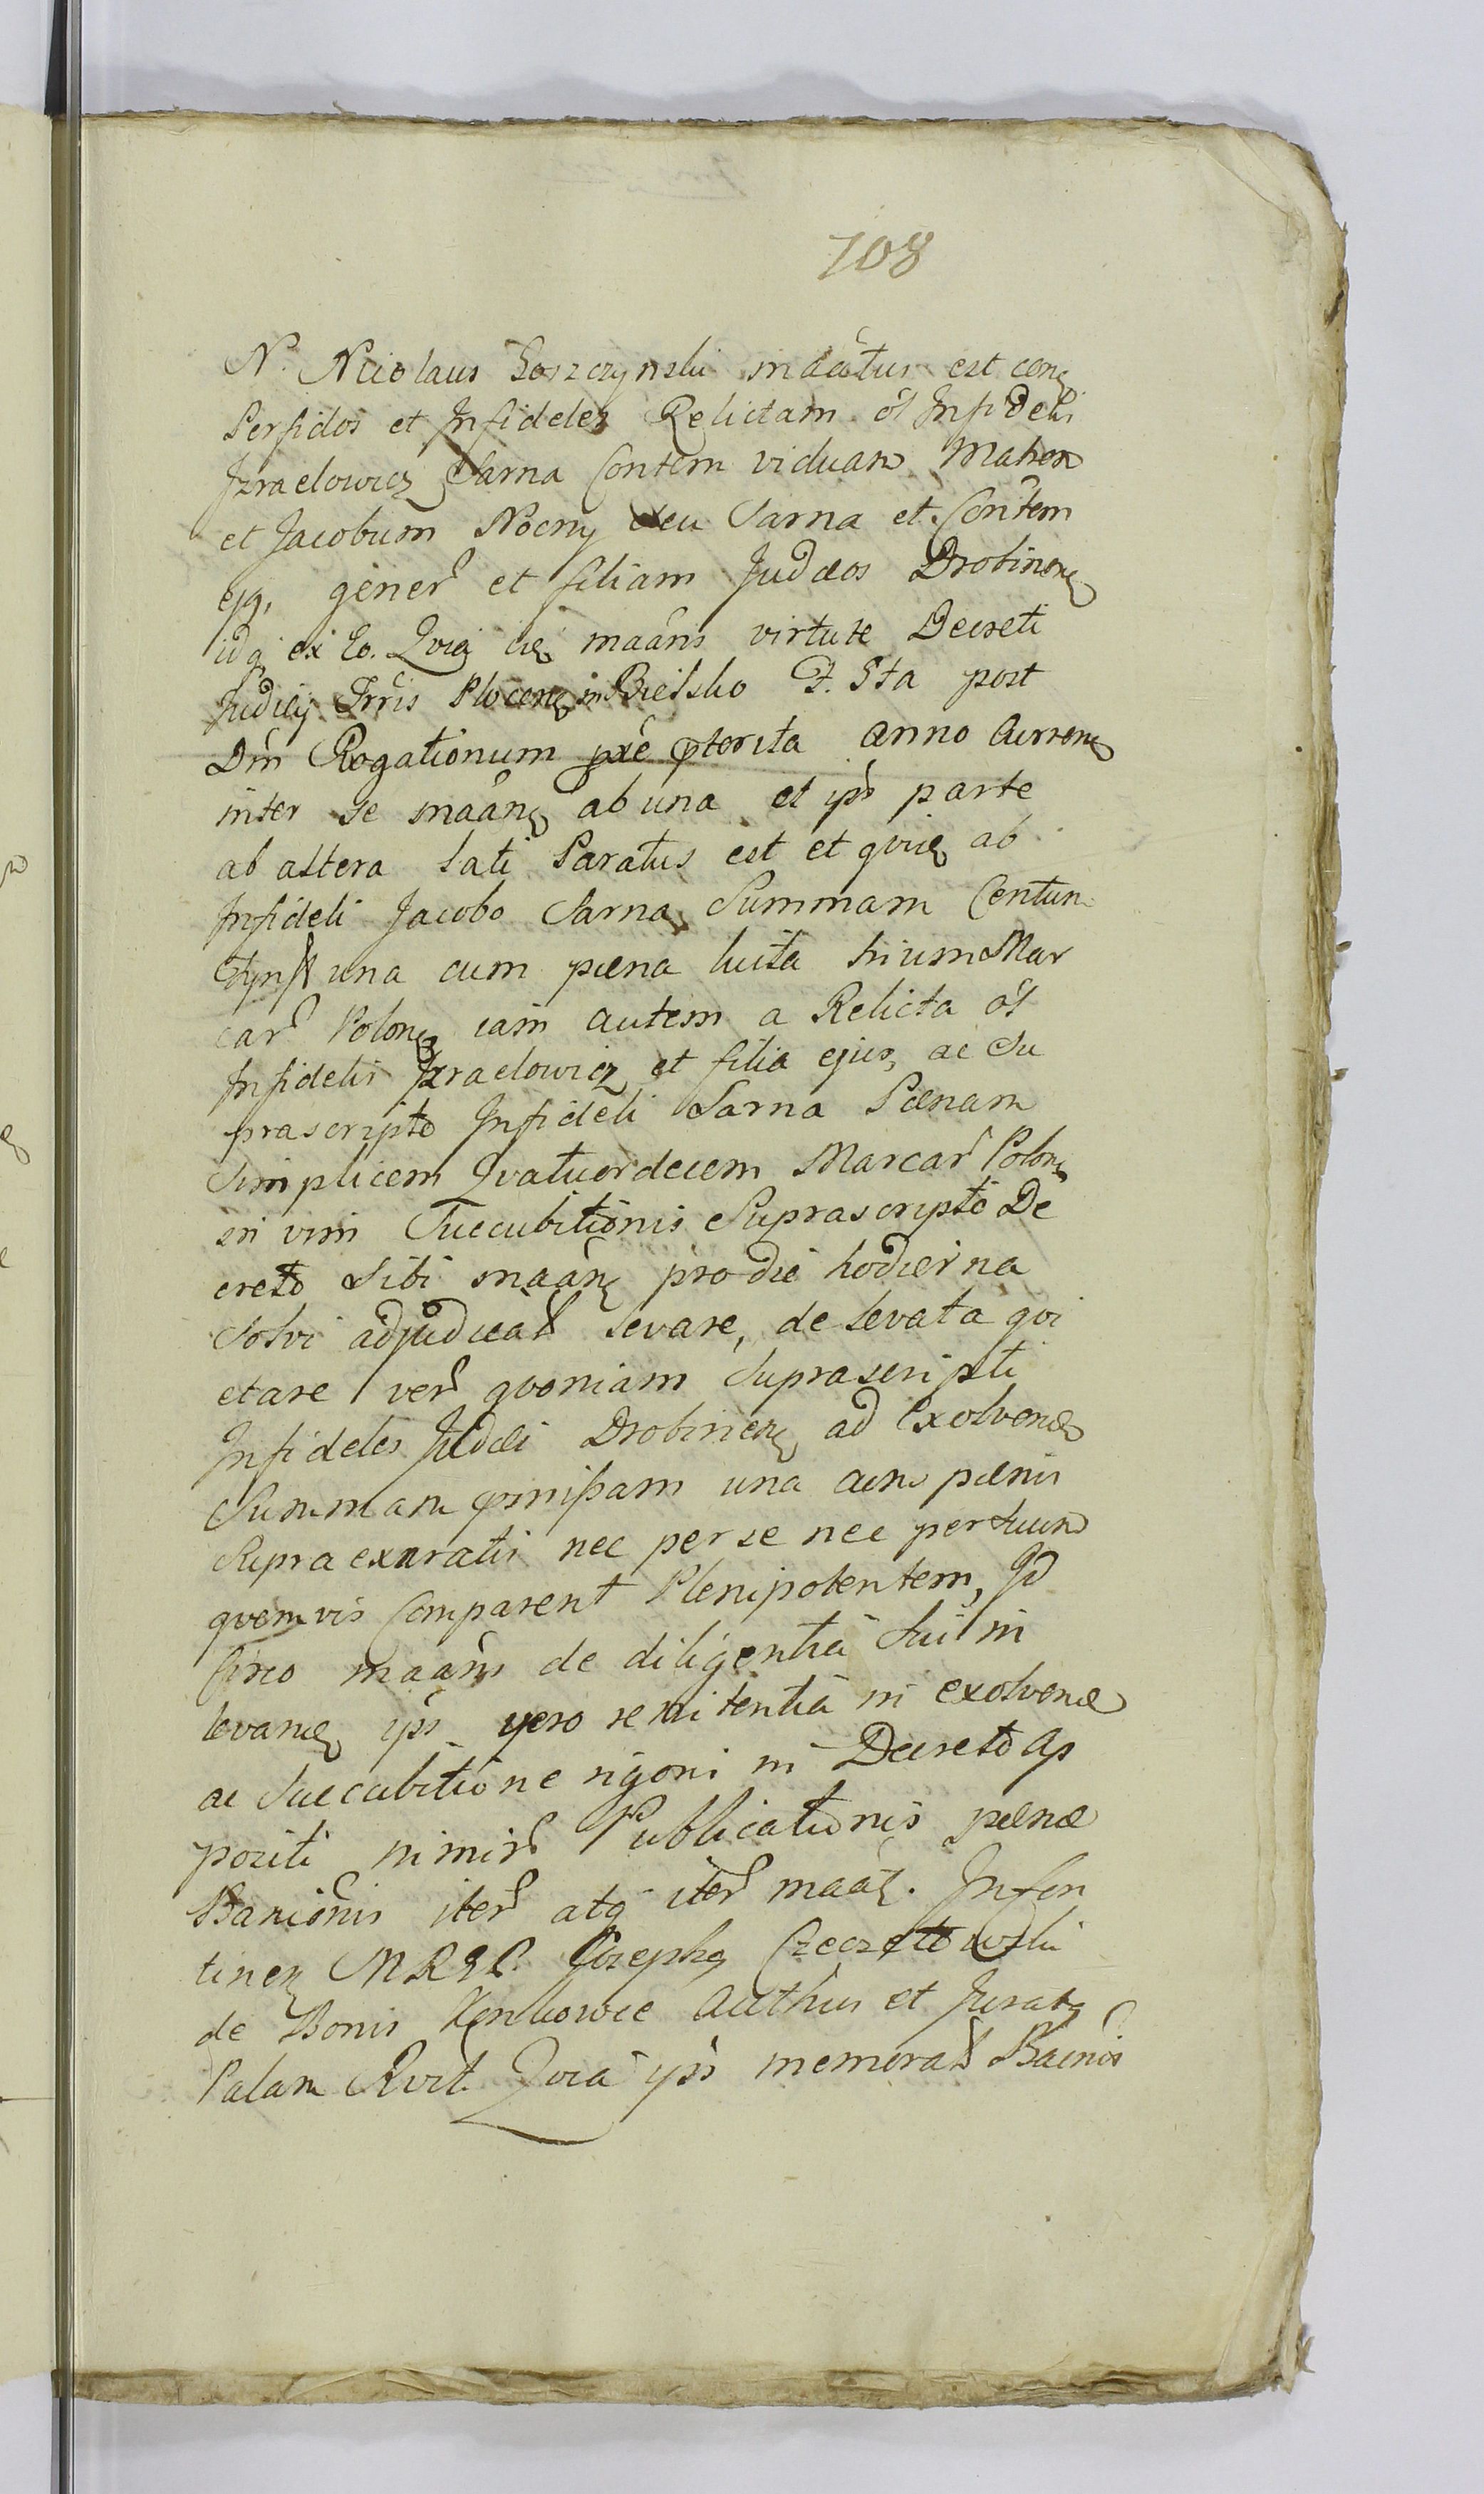 108
N. Nicolaus Goszczynski m actus est con
Perfidos et Infideles Relictam ol Infideli
Izraelowicz Sarna Contem viduam Matrem
et Jacobum Nocny seu Sarna et Contem
ejq, gener et filiam Judæos Drobinen
idq ex Eo. Qvia maans virtute Decreti
Judicij Trris Plocen in Bielsko F. 5ta post
Dm Rogationum præterita anno Curren
inter se maan ab una et ips parte
ab altera lati Paratus est et qvie ab
Infideli Jacobo Sarna Summam Centum
una cum pæna luita trium Mar
car Polon iam autem a Relicta ol
Infidelis Izraelowicz et filia ejus, ac Su
prascripto Infideli Sarna Pænam
Simplicem Qvatuordecem Marcar Polon
in vim Succubitionis Suprascripto De
creto Sibi maan pro die hodierna
Solvi adjudicat levare, de levata qvi
etare ver qvoniam Suprascripti
Infideles Judæi Drobinen ad Exolvend
Summam pmissam una cum pænis
Supra exaratis nec per se nec per suum
qvemvis Comparent Plenipotentem, Id
Circo maans de diligentia sui in
levand ips vero renitentia in exolvend
ac Succubitione rigori in Decreto ap
positi nimir Publicationis pænæ
Banionis iter atq iter maat. Infon
tinen MRSP. Joseph Czeczotowski
de Bonis Kenkowce Authus et Jurat
Palam Rvit. Qvia ips memorat Banios